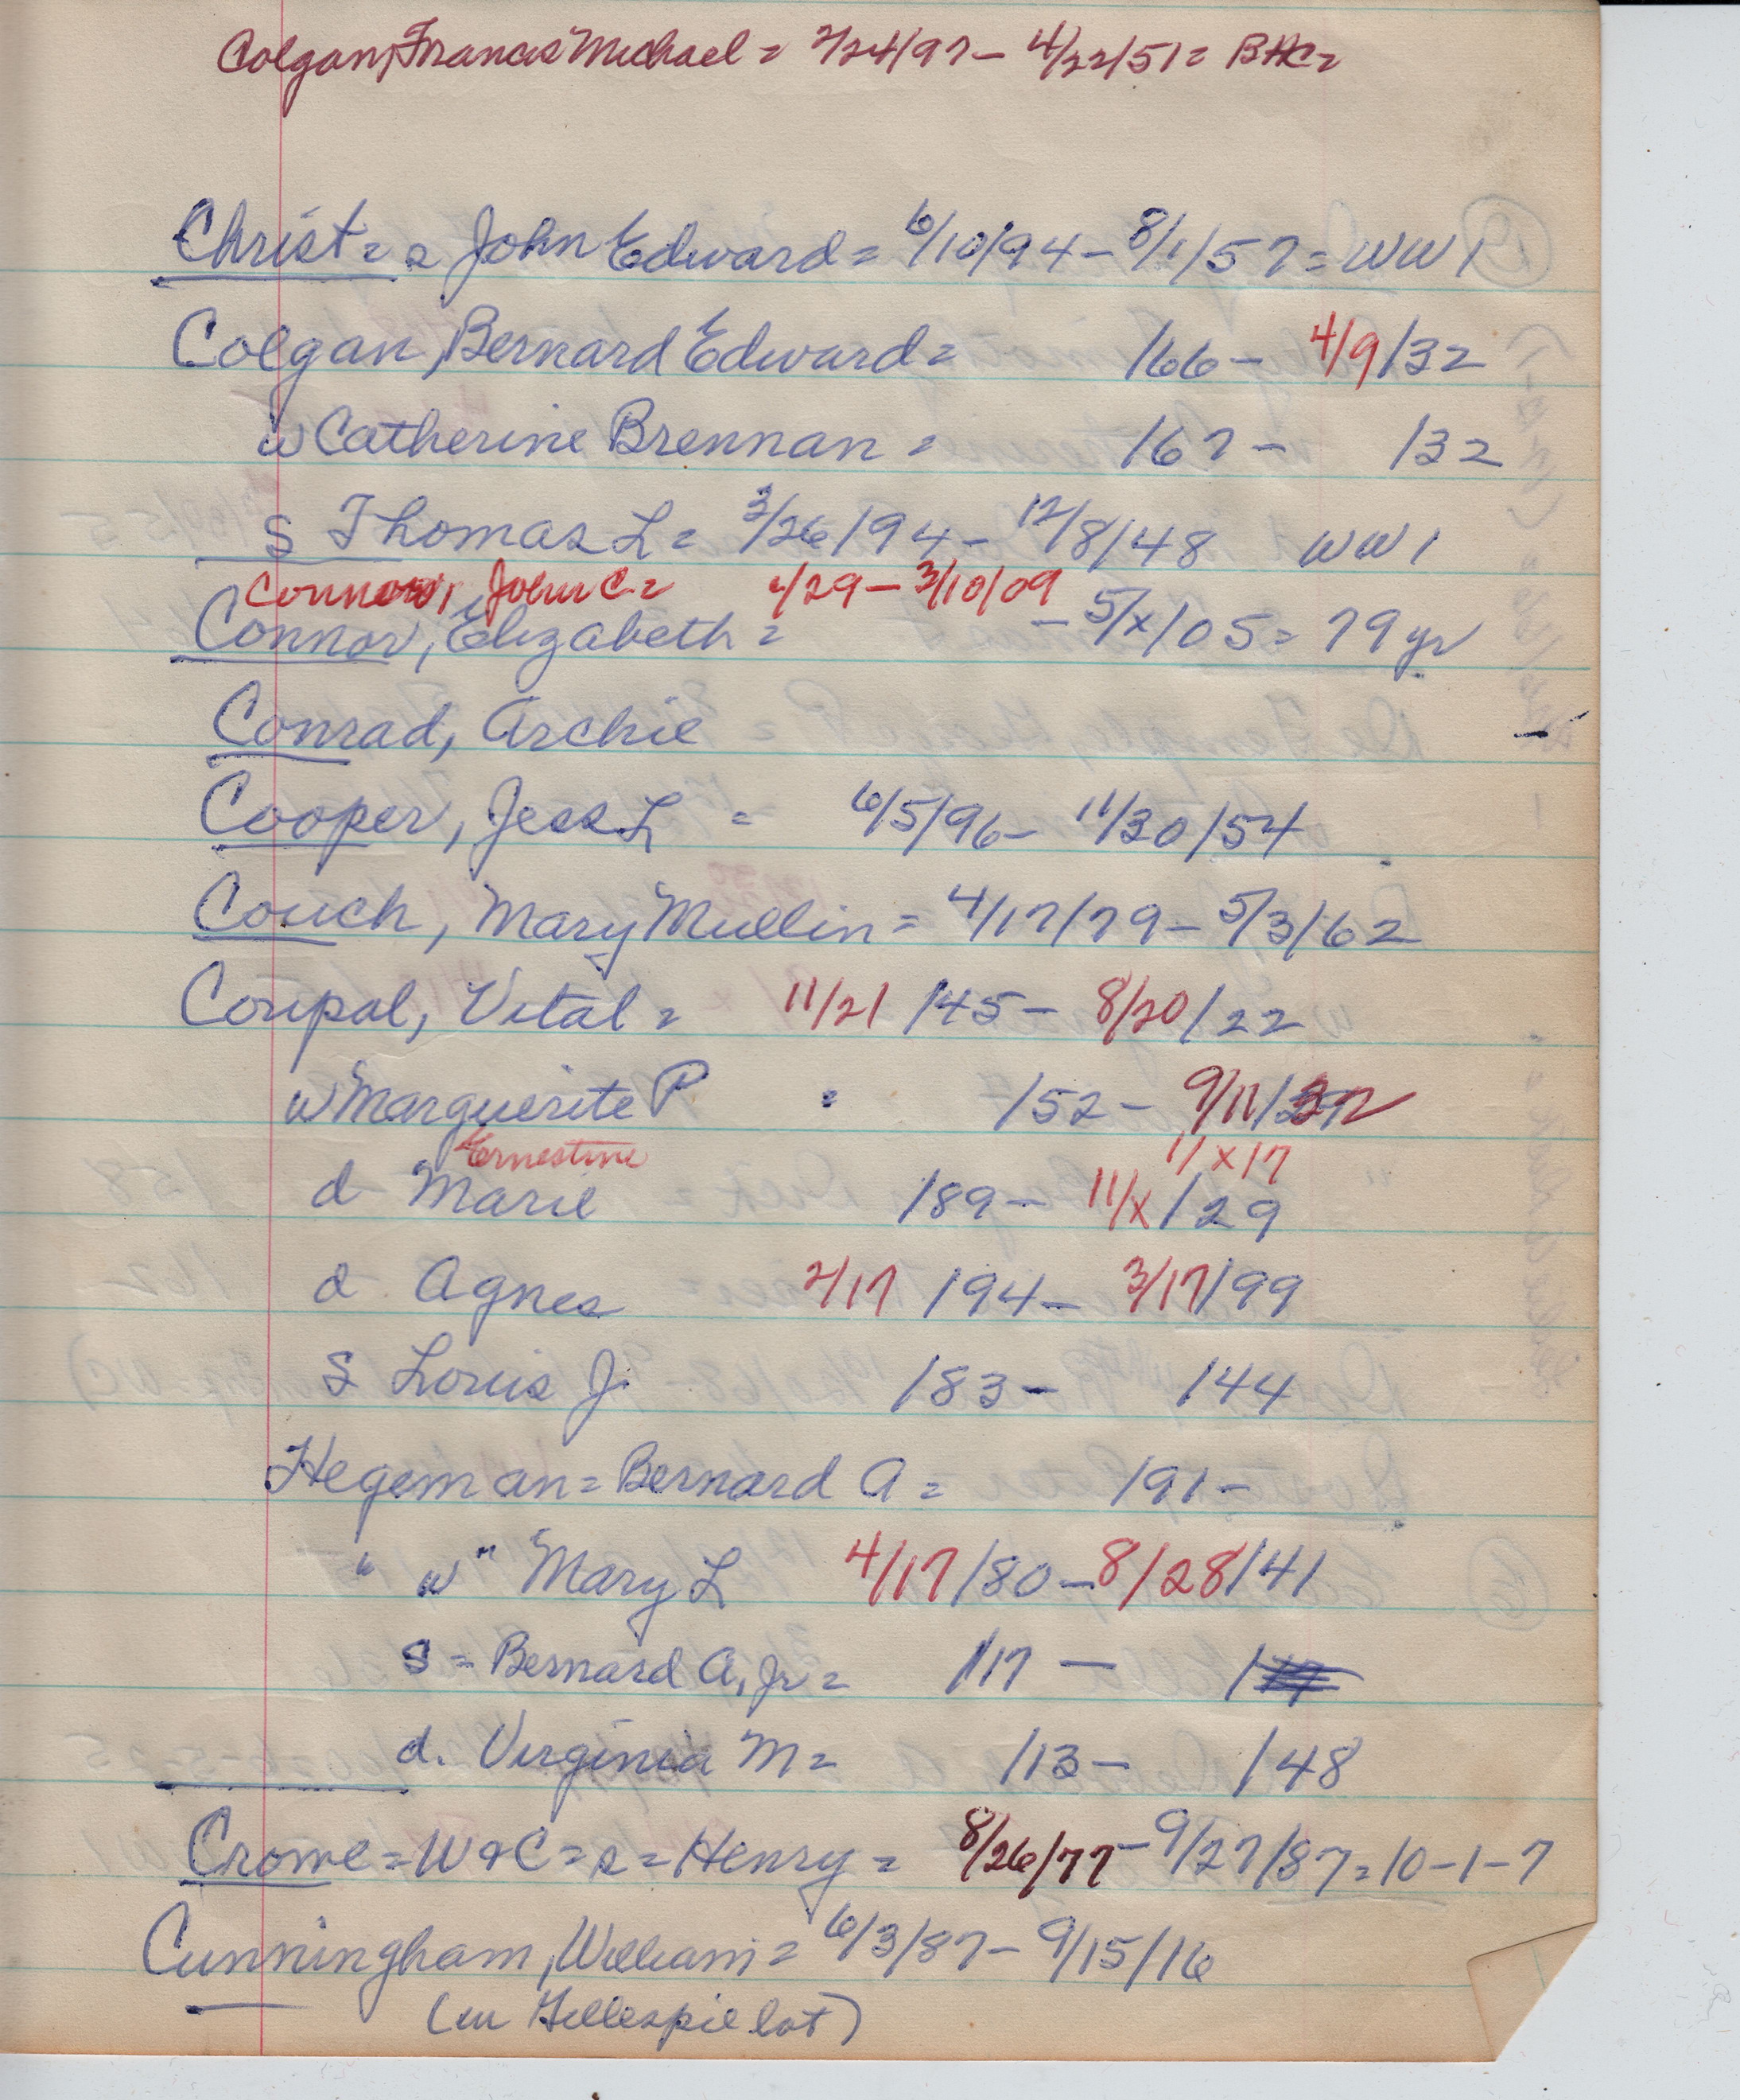 Colgan, Francis Michael = 2/24/97 - 4/22/51 =
Christ = s John Edward = 6/10/94 - 8/1/57 = WW1
Colgan, Bernard Edward = /66 - 4/9/32
w Catherine Brennan = /67 - /32
S Thomas L = 3/26/94 - 12/8/48 WW1
Connor, John C = /29 - 3/10/09
Connor, Elizabeth = - 5/x/05 = 79 yr
Conrad, Archie
Cooper, Jess L = 6/5/96 - 11/30/54
Couch, Mary Mullin = 4/17/79 - 5/3/62
Coupal, Vital = 11/21/45 - 8/20/22
w Marguerite P = /52 - 9/11/
Ernestine 11 x 17
d Marie /89 - 11/x/29
d Agnes 2/17/94 - 3/17/99
S Louis J. /83 - /44
Hegeman = Bernard A = /91 -
" w" Mary L 4/17/80 - 8/28/41
S = Bernard A, Jr = /17 - /
d. Virginia M = /13 - /48
Crowe = W & C = s = Henry = 8/26/77 - 9/27/87 = 10-1-7
Cunningham, William = 6/3/87 - 9/15/16
(in Gillespie lot)